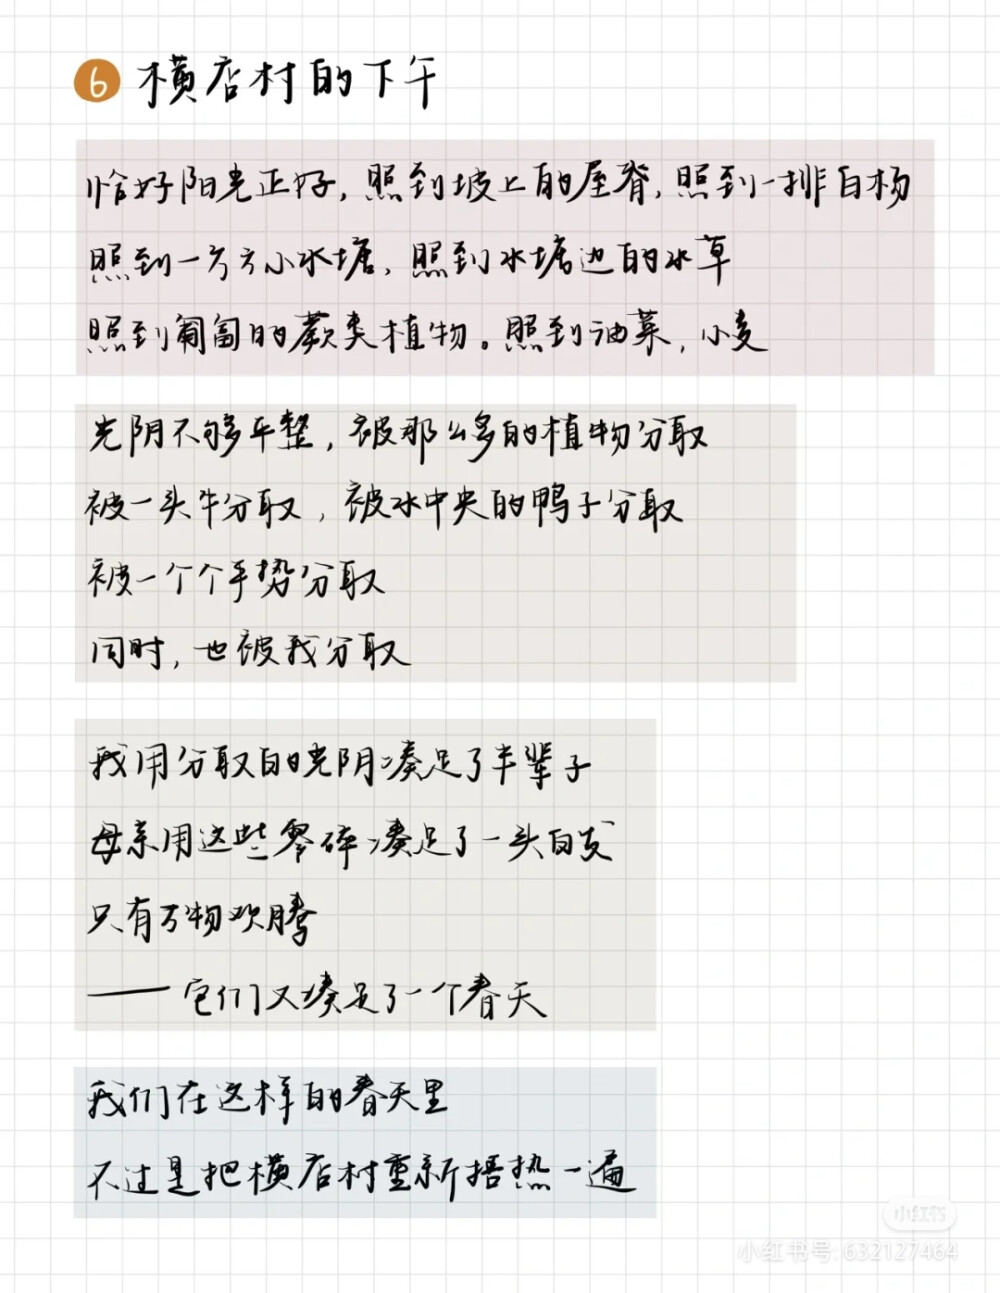 6 横店村的下午
恰好阳光正好，照到坡上的屋脊，照到一排白杨
照到一方方小水塘，照到水塘边的水草
照到匍匐的蕨类植物。照到油菜，小麦
光阴不够平整，被那么多的植物分取
被一头牛分取，被水中央的鸭子分取
被一个个手势分取
同时，也被我分取
我用分取的光阴凑足了半辈子
母亲用这些零碎凑足了一头白发
只有万物欢腾
——它们又凑足了一个春天
我们在这样的春天里
不过是把横店村重新捂热一遍
小红书
小红书号: 632127464